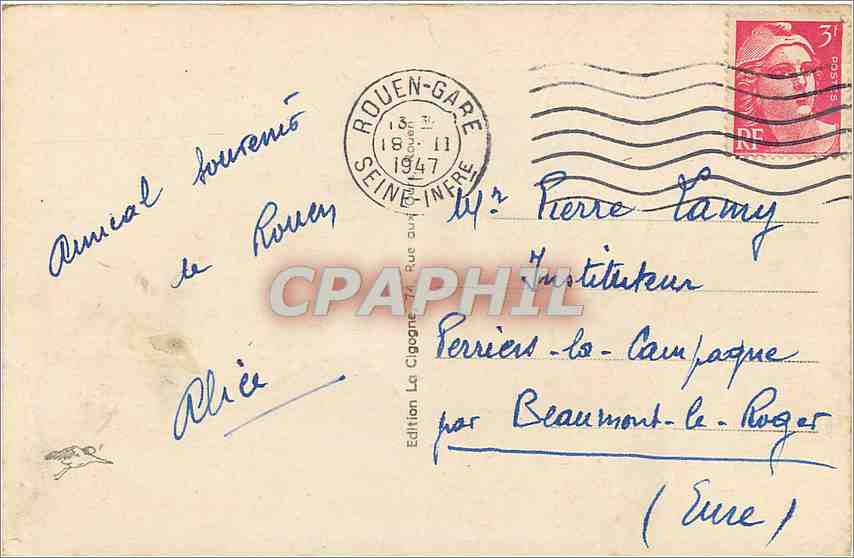 Amical Souvenir
de Rouen
Alice
Edition La Cigogne, 74, Rue aux
ROUEN-GARE
18 · II
1947
SEINE-INFRE
3F
POSTES
RF
Mr Pierre Lamy
Instituteur
Perriers-la-Campagne
par Beaumont-le-Roger
(Eure)
CPAPHIL